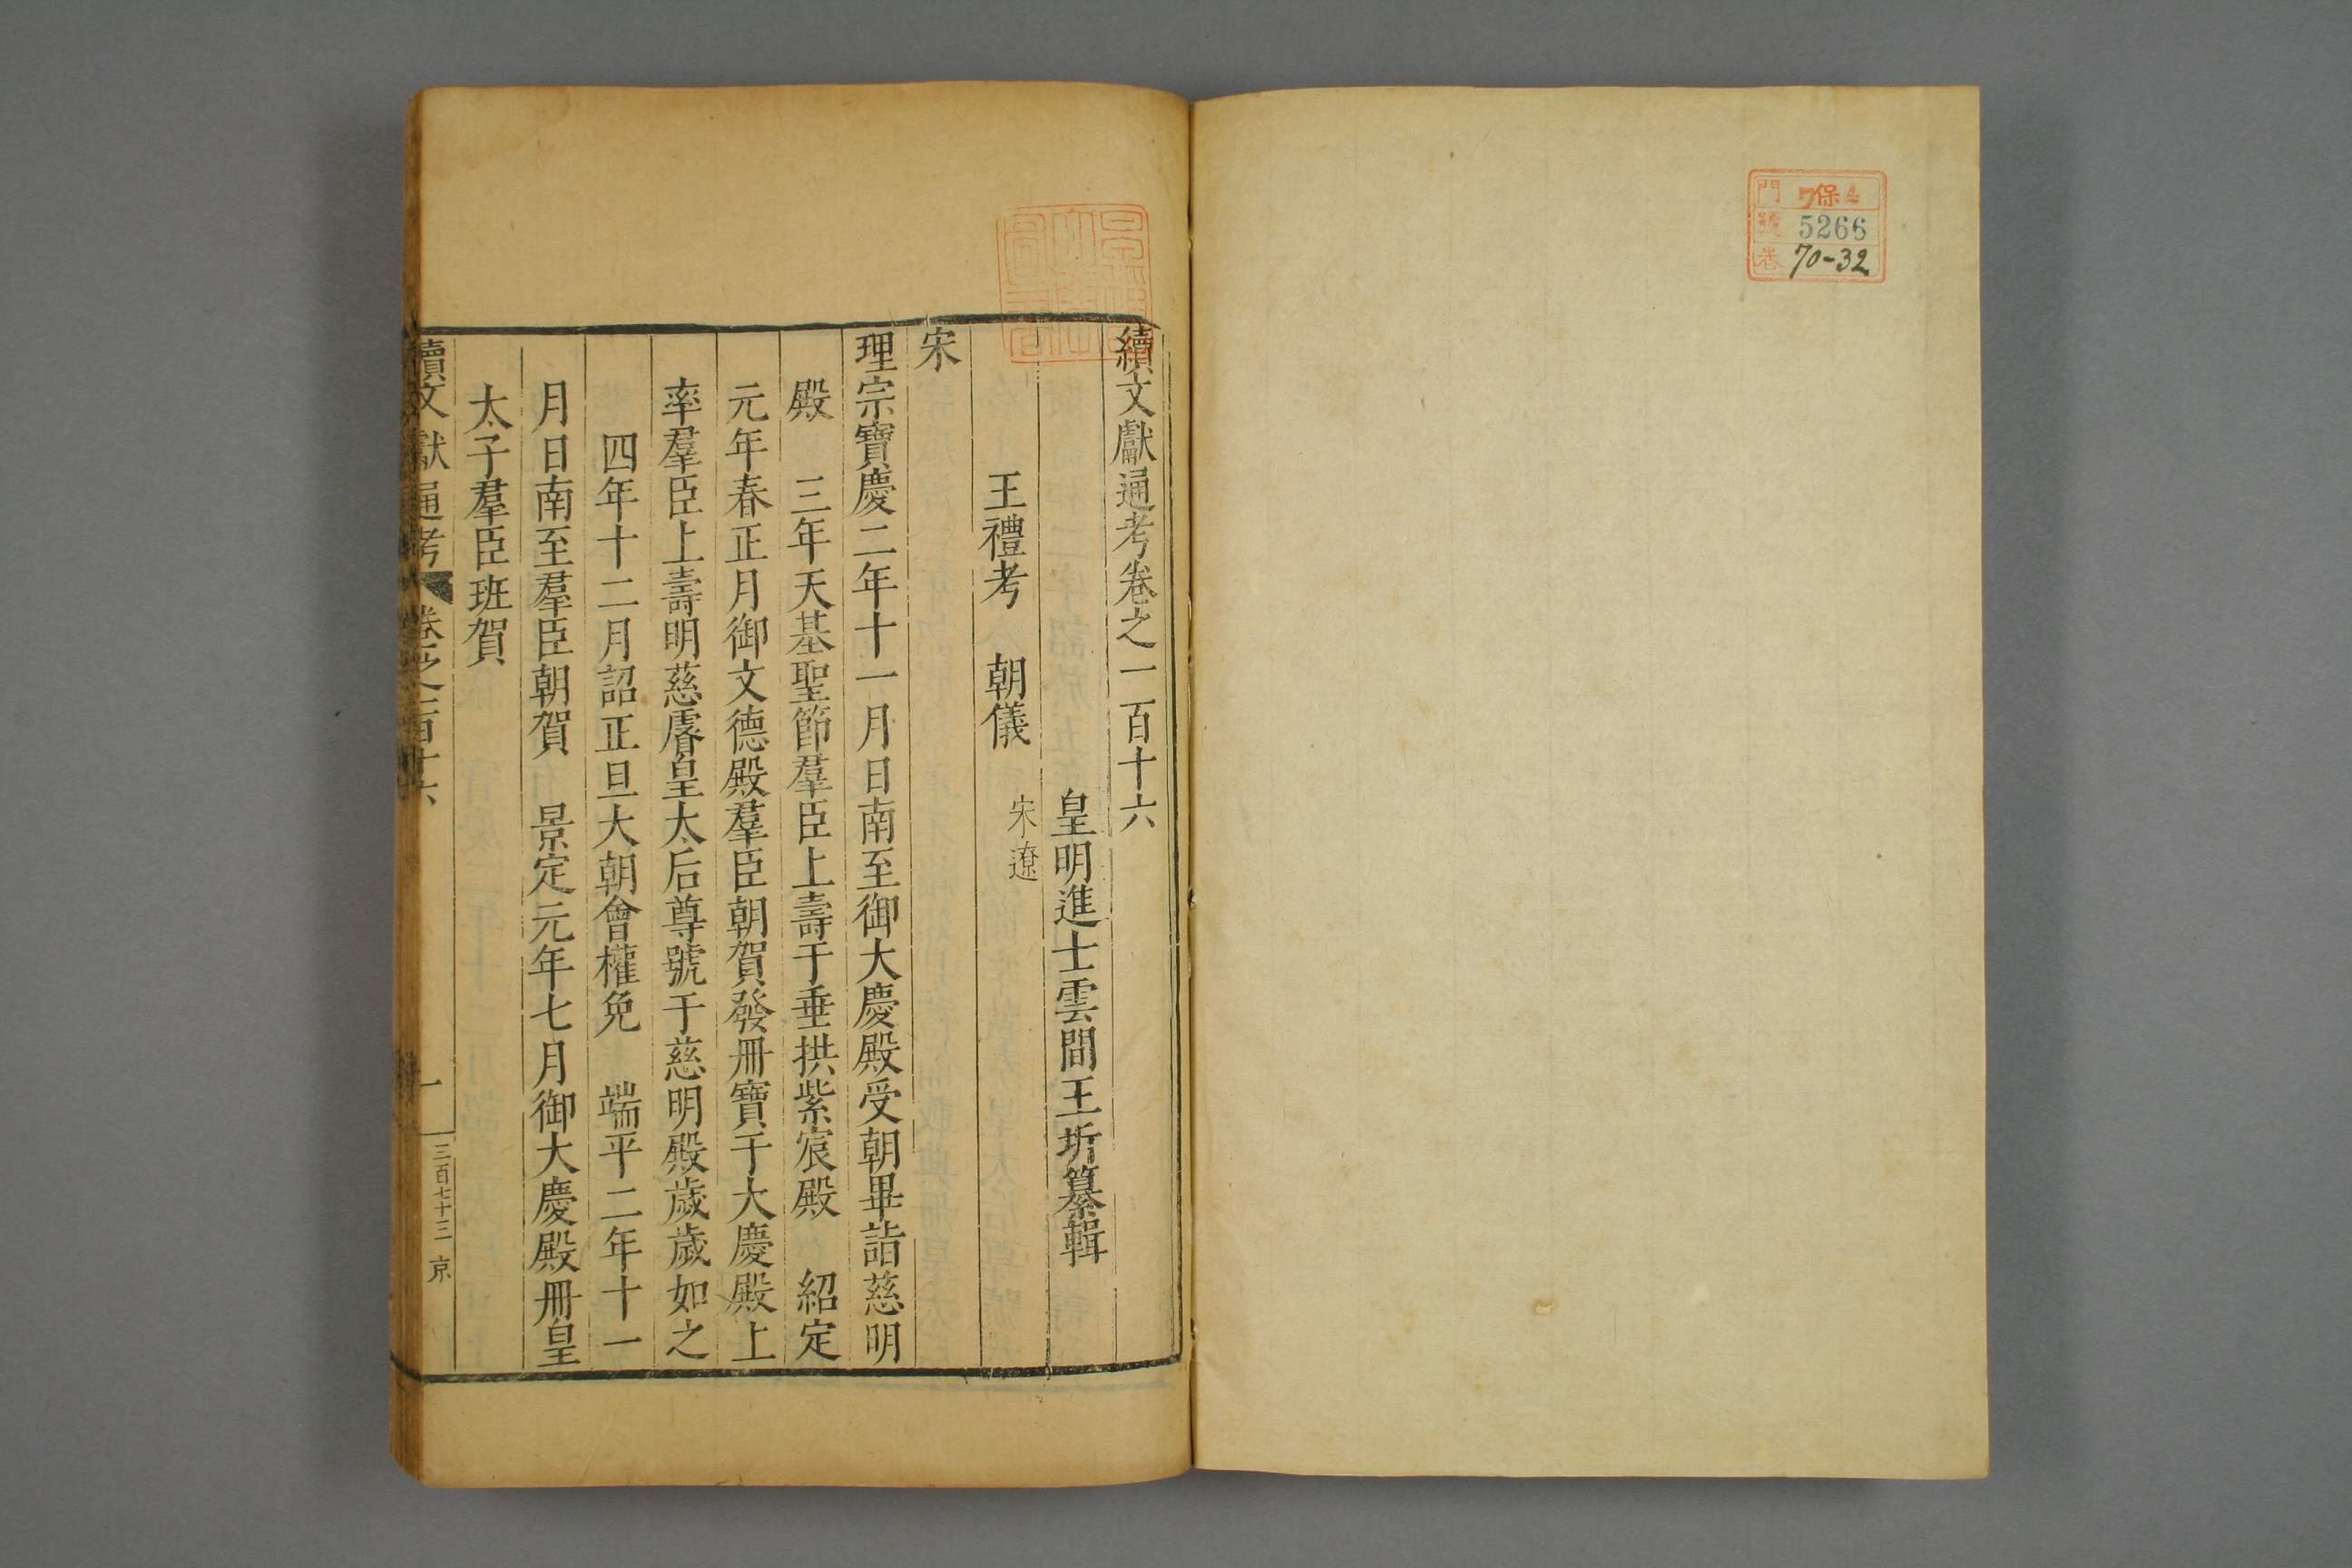 門 7保4
號 5266
卷 70-32
續文獻通考卷之一百十六
皇明進士雲間王圻纂輯
王禮考 朝儀 宋遼
宋
理宗寶慶二年十一月日南至御大慶殿受朝畢詣慈明
殿 三年天基聖節羣臣上壽于垂拱紫宸殿 紹定
元年春正月御文德殿羣臣朝賀發冊寶于大慶殿上
率羣臣上壽明慈睿皇太后尊號于慈明殿歲歲如之
四年十二月詔正旦大朝會權免 端平二年十一
月日南至羣臣朝賀 景定元年七月御大慶殿冊皇
太子羣臣班賀
續文獻通考 卷之一百十六 一 三百七十三 京